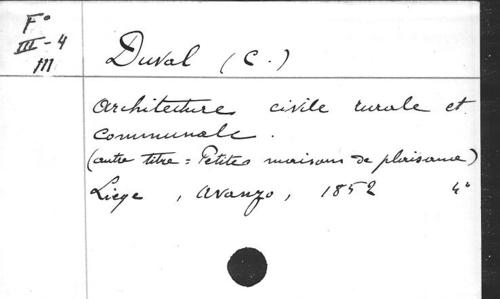 F°
III-4
m
Duval (C.)
Architecture civile rurale et
communale.
(autre titre = Petites maisons de plaisance)
Liege, Avanzo, 1852 4°